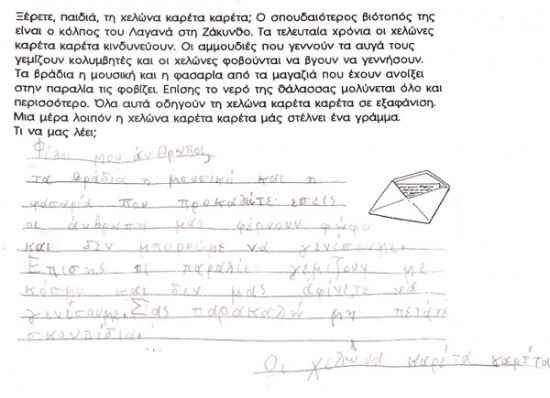 Ξέρετε, παιδιά, τη χελώνα καρέτα καρέτα; Ο σπουδαιότερος βιότοπός της
είναι ο κόλπος του Λαγανά στη Ζάκυνθο. Τα τελευταία χρόνια οι χελώνες
καρέτα καρέτα κινδυνεύουν. Οι αμμουδιές που γεννούν τα αυγά τους
γεμίζουν κολυμβητές και οι χελώνες φοβούνται να βγουν να γεννήσουν.
Τα βράδια η μουσική και η φασαρία από τα μαγαζιά που έχουν ανοίξει
στην παραλία τις φοβίζει. Επίσης το νερό της θάλασσας μολύνεται όλο και
περισσότερο. Όλα αυτά οδηγούν τη χελώνα καρέτα καρέτα σε εξαφάνιση.
Μια μέρα λοιπόν η χελώνα καρέτα καρέτα μάς στέλνει ένα γράμμα.
Τι να μας λέει;
Φίλοι μου άνθρωποι,
τα βράδια η μουσική και η
φασαρία που προκαλάτε εσείς
οι άνθρωπη μας φέρνουν φώβο
και δεν μπορούμε να γενίσουμε.
Επισης οι παραλίε γεμίζουν με
κόσμο και δεν μας αφίνετε να
γενίσουμε. Σας παρακαλώ μη πετάτε
σκουπίδια.
Οι χελώνα καρέτα καρέτα